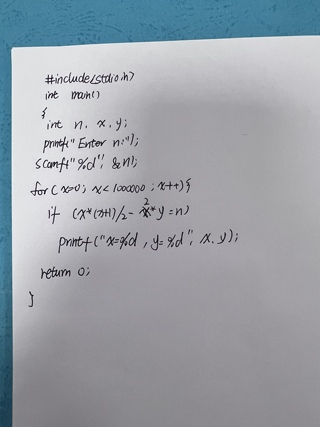 #include<stdio.h>
int main()
{
int n, x, y;
printf("Enter n:");
scanf("%d", &n);
for(x=0; x<1000000; x++){
if (x*(x+1)/2-2*y=n)
printf("x=%d, y=%d", x, y);
return 0;
}